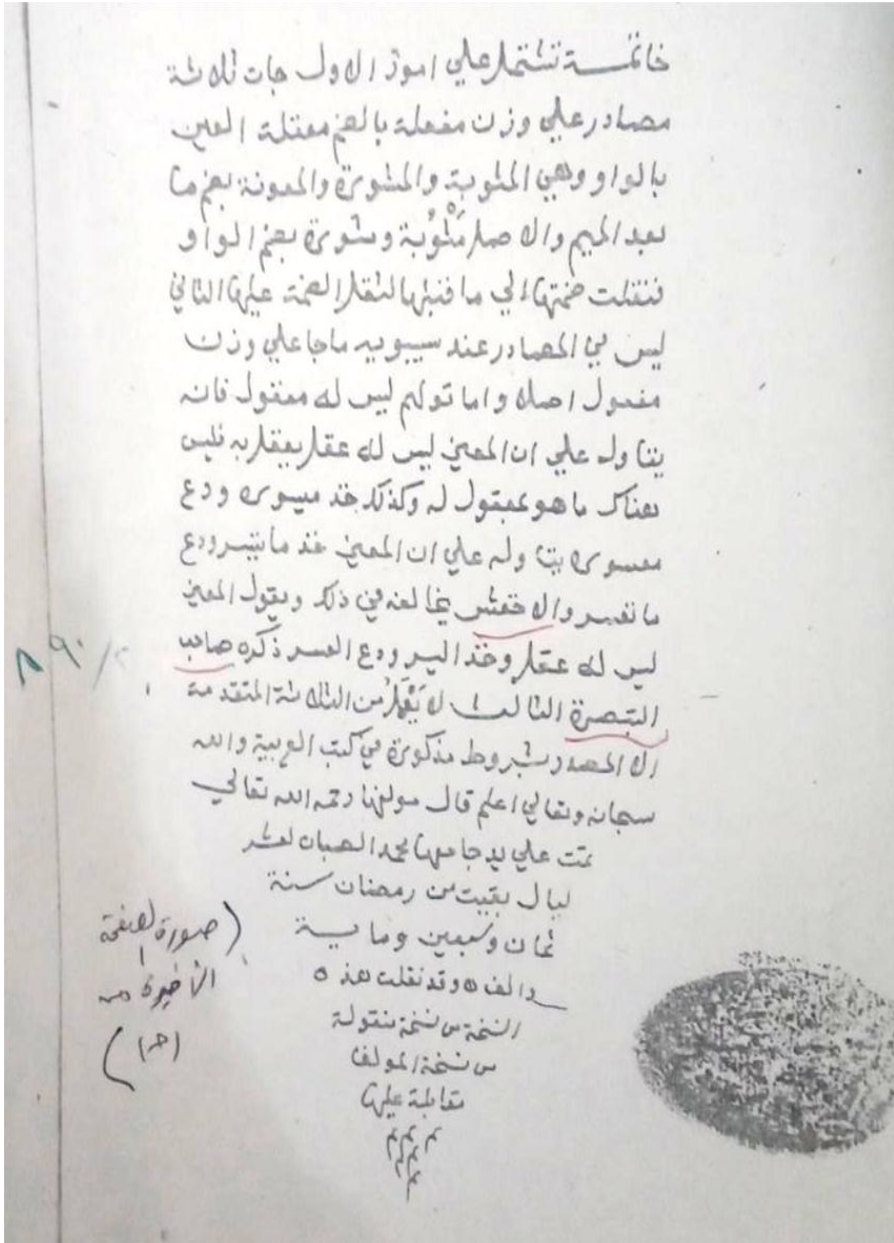 خاتمــة تشتمل علي امور الاول جات ثلاثة
مصادر علي وزن مفعلة بالضم معتلة العين
بالواو وهي المثوبة والمشورة والمعونة بضم ما
بعد الميم والاصل مَثْوُبة ومشورة بضم الواو
فنقلت ضمتها الي ما قبلها لثقل الضمة عليها الثاني
ليس في المصادر عند سيبويه ما جا علي وزن
مفعول اصلا واما قولهم ليس له معقول فانه
يتاوله علي ان المعني ليس له عقل يعقل به فليس
هناك ما هو بمعقول له وكذلك خذ ميسوره ودع
معسوره يتاوله علي ان المعني خذ ما تيسر ودع
ما تعسر والاخفش يخالفه في ذلك ويقول المعني
ليس له عقل وخذ اليسر ودع العسر ذكره صاحب
التبصرة الثالث لا يَعْمَلُ من الثلاثة المتقدمة
الا المصدر بشروط مذكورة في كتب العربية والله
سبحانه وتعالي اعلم قال مولفها رحمه الله تعالي
تمت علي يد جامعها محمد الصبان لعشر
ليال بقيت من رمضان سنة
ثمان وسبعين وماية
والف ه وقد نقلت هذه
النسخة من نسخة منقولة
من نسخة المولف
مقابلة عليها
م م م
٩٠/٢
(صورة الصفحة
الأخيرة من